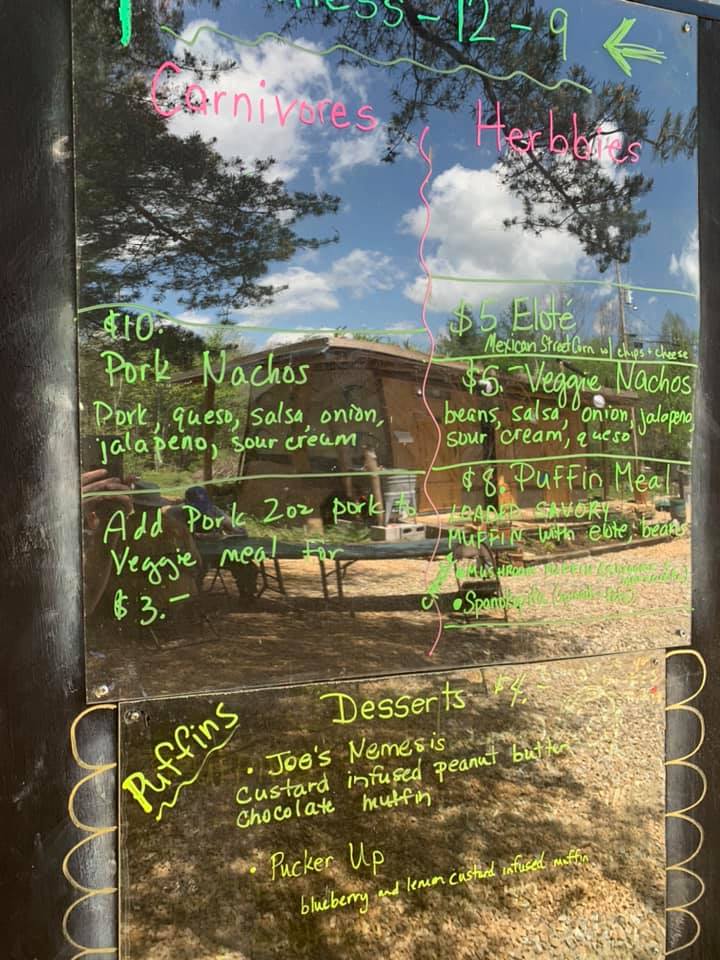 ness - 12 - 9
Carnivores
$10.
Pork Nachos
Pork, queso, salsa, onion,
jalapeno, sour cream
Add Pork 2oz pork to
Veggie meal for
$3.-
Herbbies
$5 Eloté
Mexican Street Corn w/ chips + cheese
$6.- Veggie Nachos
beans, salsa, onion, jalapeno,
sour cream, queso
$8. Puffin Meal
LOADED SAVORY
MUFFIN with elote, beans
• MUSHROOM MUFFIN
Puffins
Desserts $4.-
• Joe's Nemesis
custard infused peanut butter
chocolate muffin
• Pucker Up
blueberry and lemon custard infused muffin